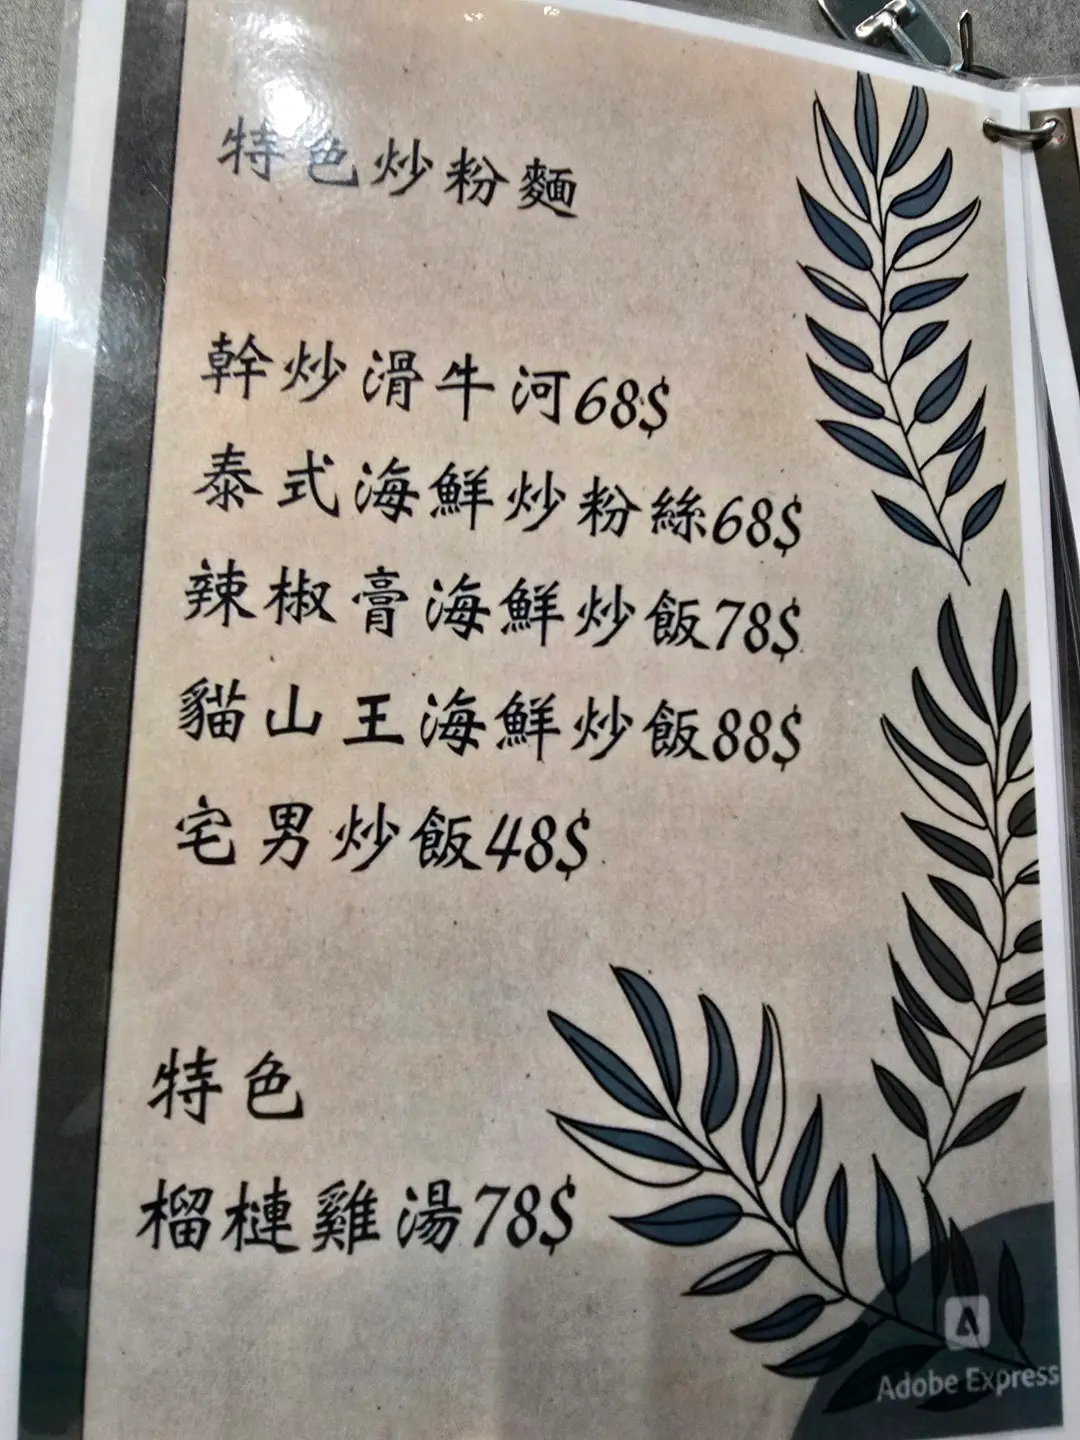 特色炒粉麵
幹炒滑牛河68$
泰式海鮮炒粉絲68$
辣椒膏海鮮炒飯78$
貓山王海鮮炒飯88$
宅男炒飯48$
特色
榴槤雞湯78$
Adobe Express